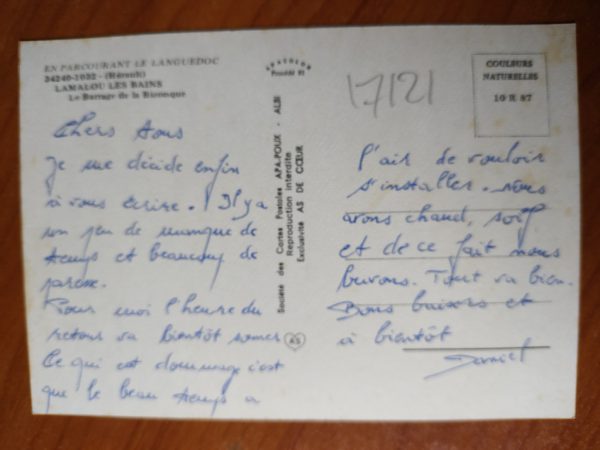 EN PARCOURANT LE LANGUEDOC
34240-1032 - (Hérault)
LAMALOU LES BAINS
Le Barrage de la Bironque
Chers tous
Je me décide enfin
à vous écrire. Il y a
un peu de manque de
temps et beaucoup de
paresse.
Pour moi l'heure du
retour va bientôt sonner
Ce qui est dommage c'est
que le beau temps a
Société des Cartes Postales APA-POUX - ALBI
Reproduction interdite
Exclusivité AS DE CŒUR
AS
APACOLOR
Procédé
17/21
COULEURS
NATURELLES
10 H 87
l'air de vouloir
s'installer. Nous
avons chaud, soif
et de ce fait nous
buvons. Tout va bien.
Bons baisers et
à bientôt
Daniel